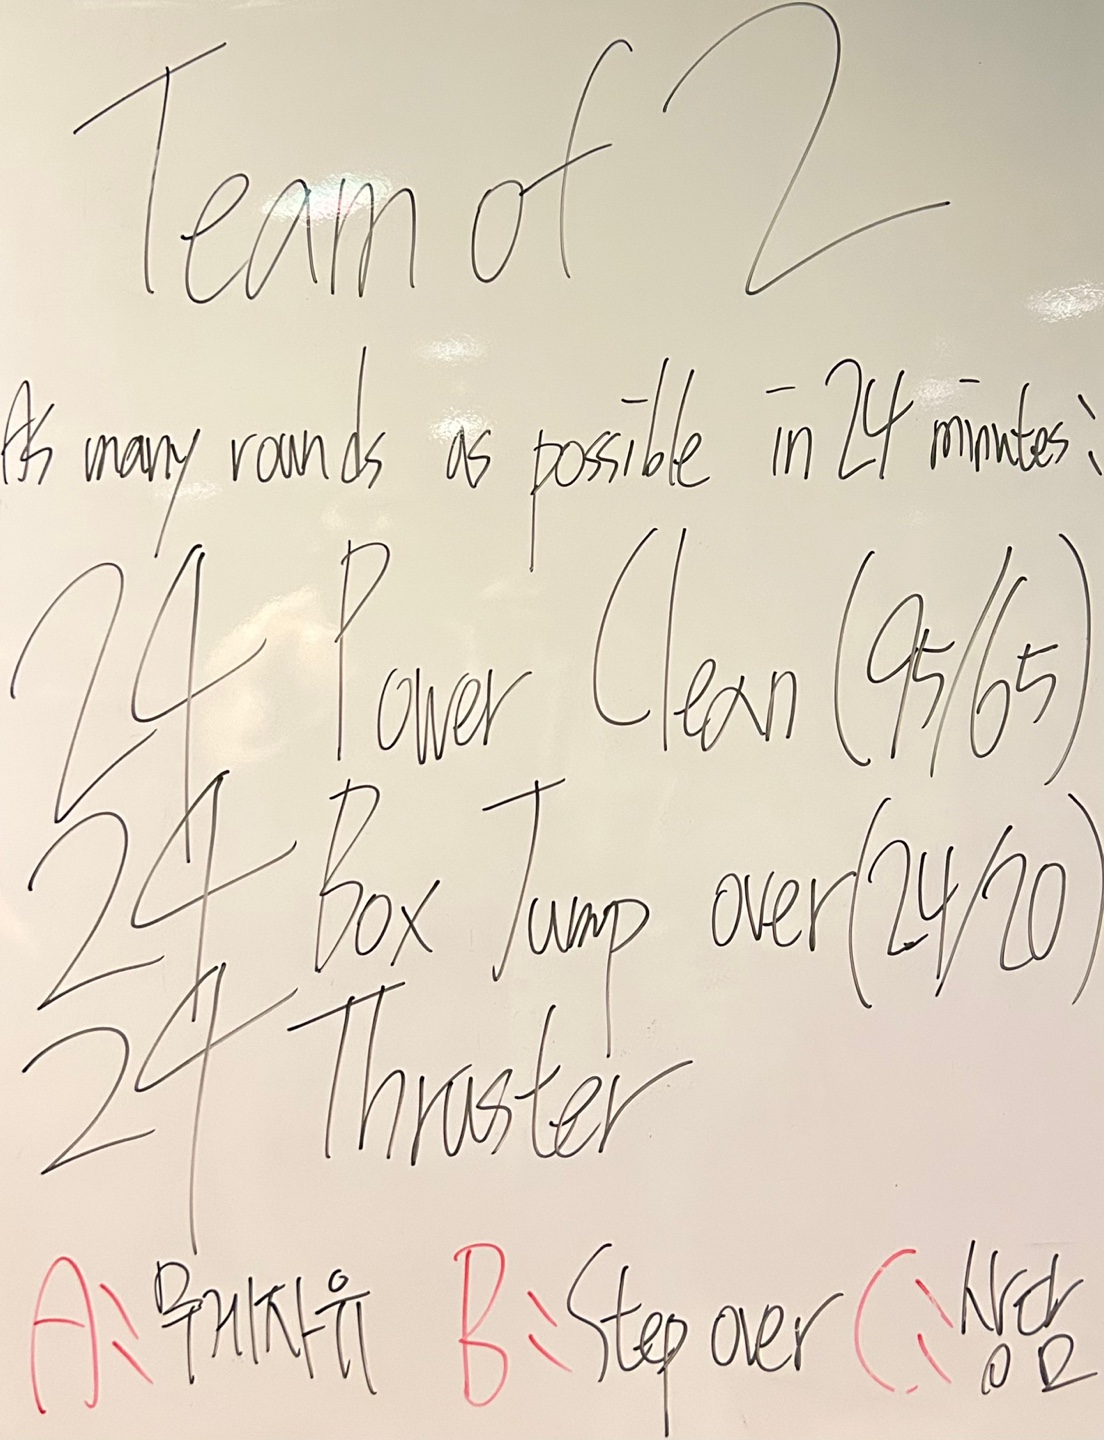 Team of 2
As many rounds as possible in 24 minutes:
24 Power Clean (95/65)
24 Box Jump over (24/20)
24 Thruster
A: 무게자유 B: Step over C: 상담